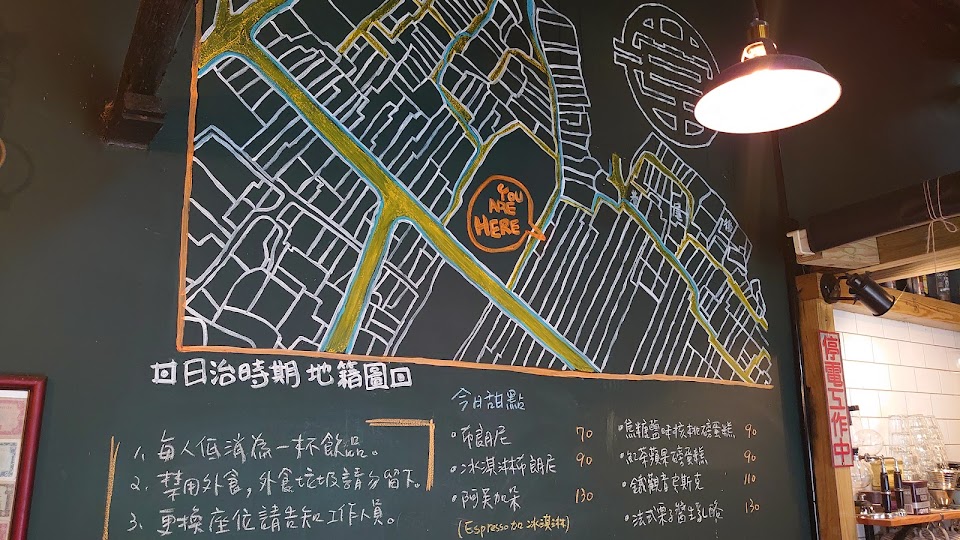 YOU
ARE
HERE
日治時期 地籍圖
1. 每人低消為一杯飲品。
2. 禁用外食,外食垃圾請勿留下。
3. 更換座位請告知工作人員。
今日甜點
•布朗尼 70
•冰淇淋布朗尼 90
•阿芙加朵 130
(Espresso加冰淇淋)
•焦糖鹽味核桃磅蛋糕 90
•紅茶蘋果磅蛋糕 90
•鐵觀音安斯克 110
•法式栗子醬生乳酪 130
停電工作中